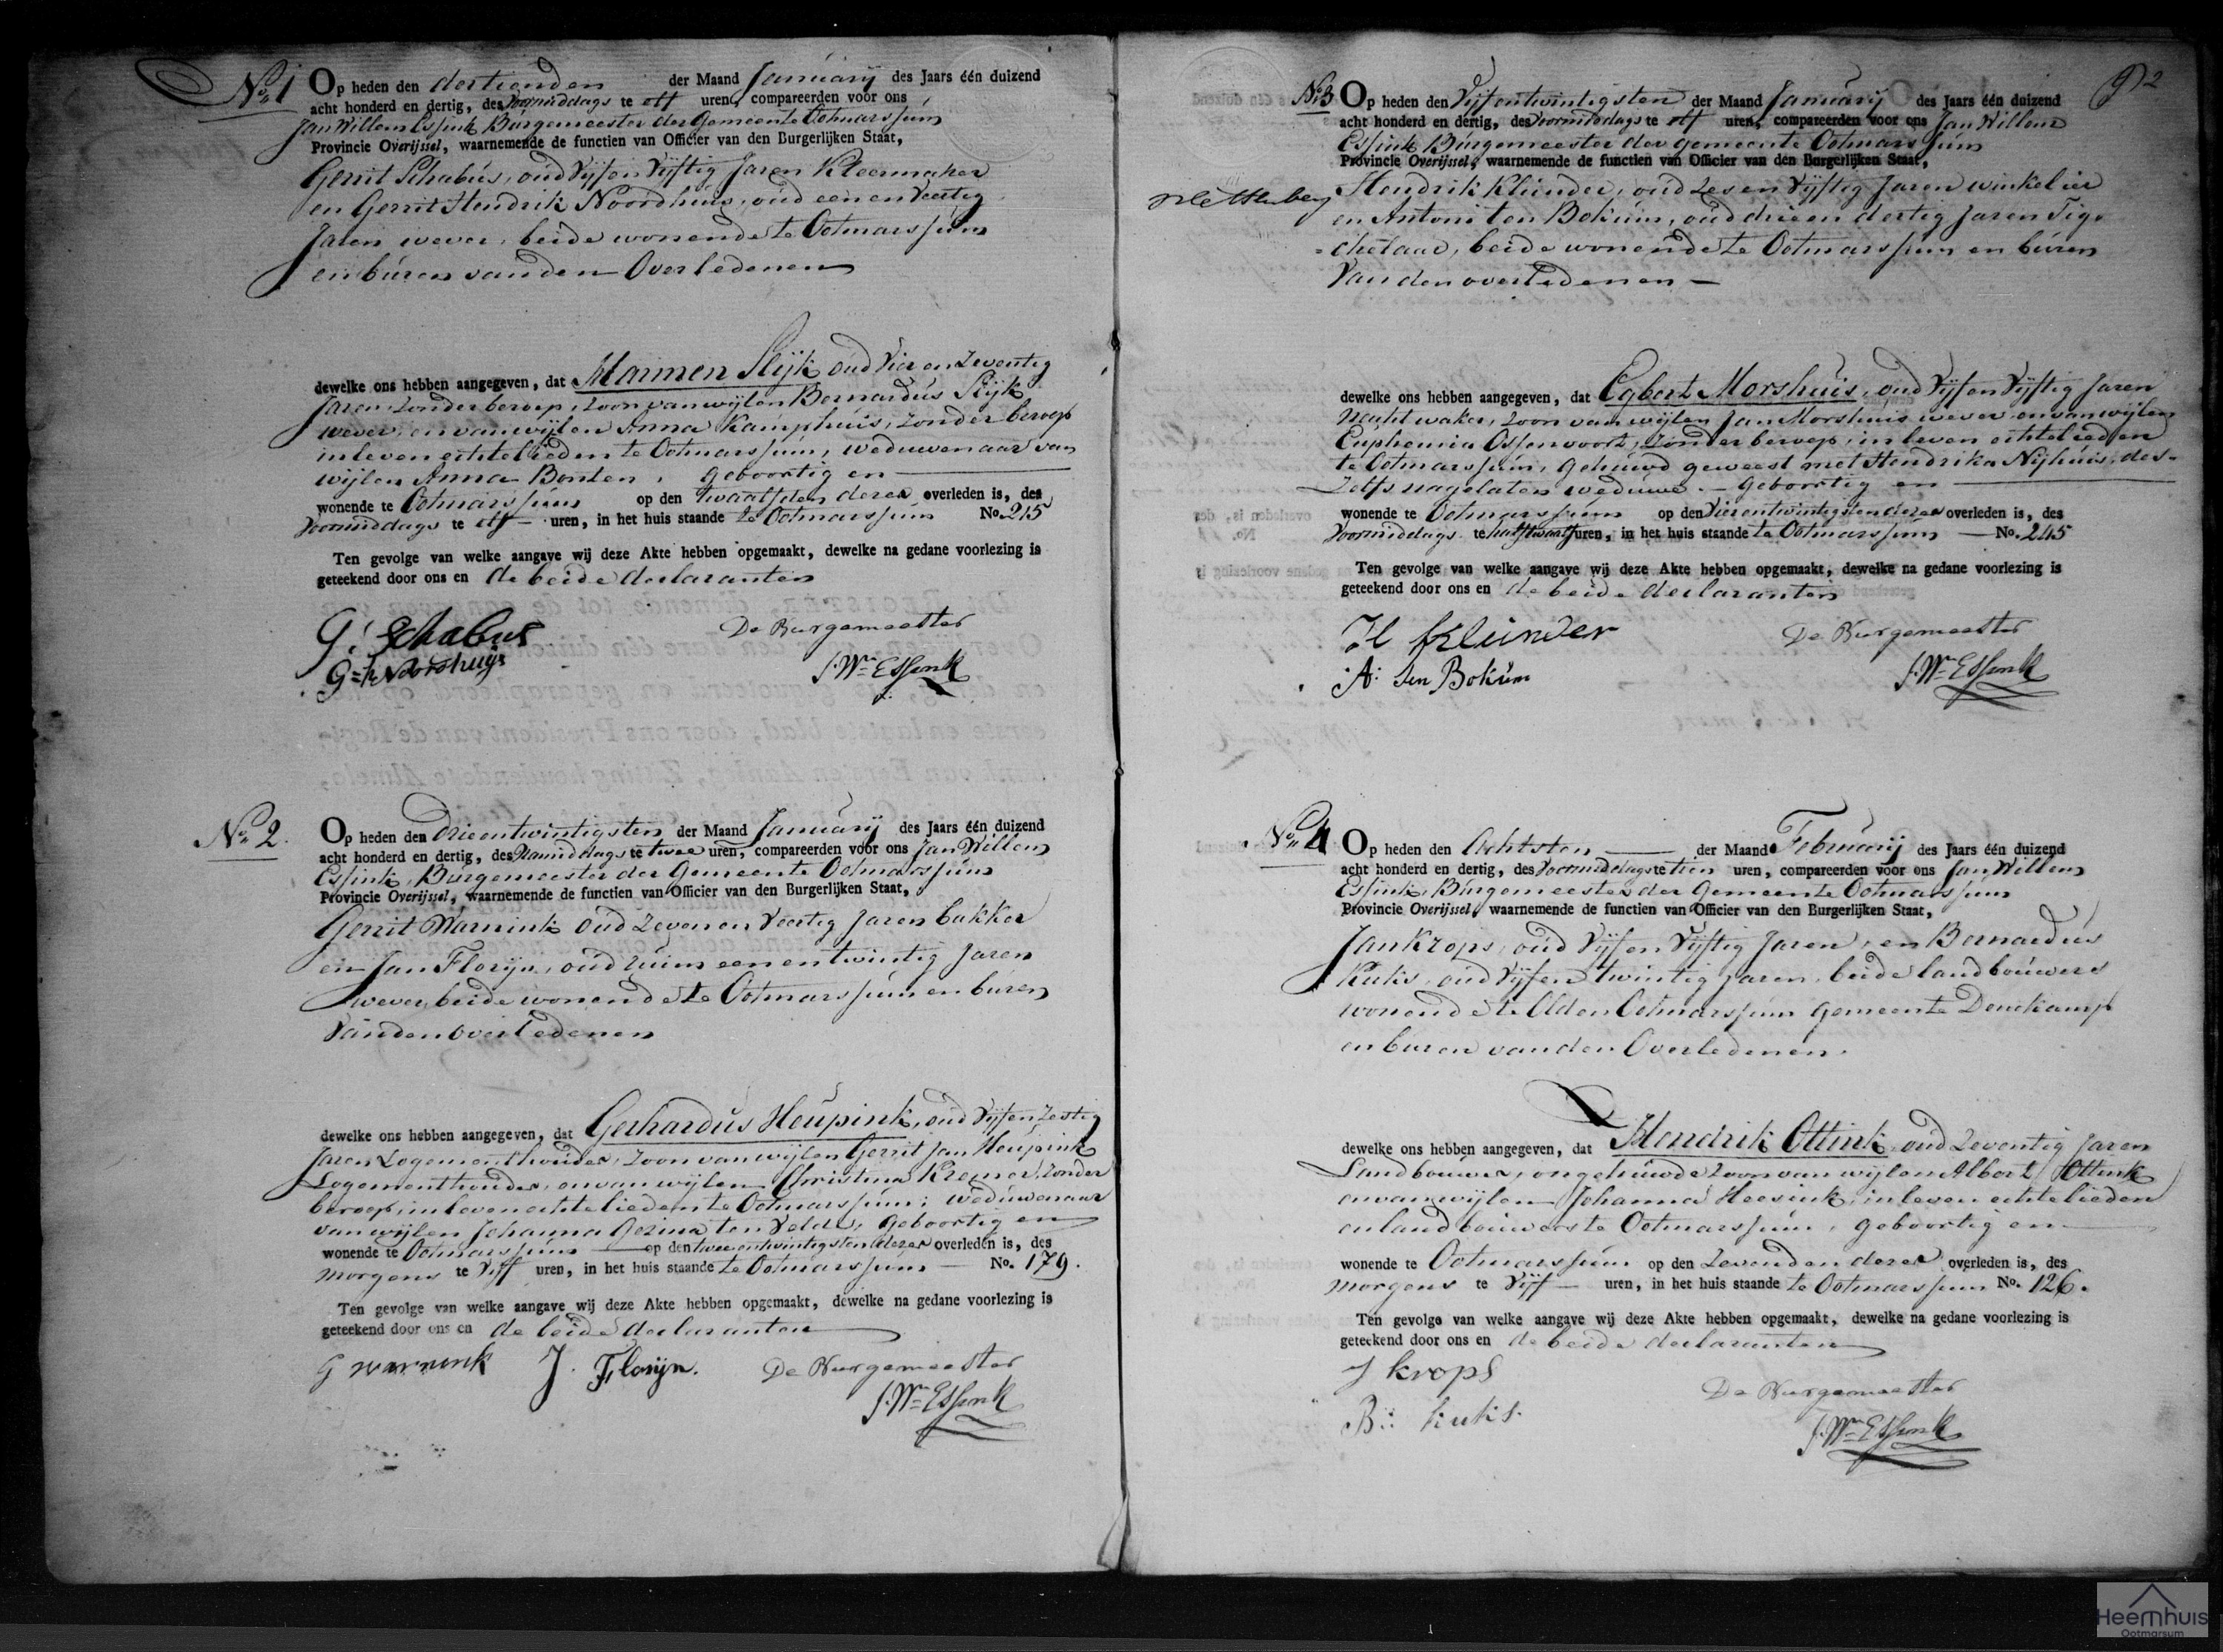 No 1 Op heden den dertienden der Maand Januarij des Jaars één duizend
acht honderd en dertig, des Voormiddags te elf uren, compareerden voor ons
Jan Willem Essink Burgemeester der Gemeente Ootmarssum
Provincie Overijssel, waarnemende de functien van Officier van den Burgerlijken Staat,
Gerrit Schabus, oud Vijf en Vijftig Jaren Kleermaker
en Gerrit Hendrik Noordhuis, oud een en Veertig
Jaren wever, beide wonende te Ootmarssum
en buren van den Overledenen
dewelke ons hebben aangegeven, dat Harmen Slijk oud Vier en Zeventig
Jaren, zonder beroep, zoon van wijlen Bernardus Slijk
wever, en van wijlen Anna Kamphuis, zonder beroep
in leven echtelieden te Ootmarssum, weduwenaar van
wijlen Anna Bonten, geboortig en
wonende te Ootmarssum op den twaalfden dezer overleden is, des
Voormiddags te elf uren, in het huis staande te Ootmarssum No. 215
Ten gevolge van welke aangave wij deze Akte hebben opgemaakt, dewelke na gedane voorlezing is
geteekend door ons en de beide declaranten
G: Schabus De Burgemeester
G=h Noordhuijs J. Wm Essink
No 2. Op heden den Drieentwintigsten der Maand Januarij des Jaars één duizend
acht honderd en dertig, des Namiddags te twee uren, compareerden voor ons Jan Willem
Essink, Burgemeester der Gemeente Ootmarssum
Provincie Overijssel, waarnemende de functien van Officier van den Burgerlijken Staat,
Gerrit Warnink oud Zeven en Veertig Jaren bakker
en Jan Florijn, oud ruim een en twintig Jaren
wever, beide wonende te Ootmarssum en buren
van den Overledenen
dewelke ons hebben aangegeven, dat Gerhardus Heupink, oud Vijf en Zestig
Jaren Logementhouder, zoon van wijlen Gerrit Jan Heupink
Logementhouder, en van wijlen Christina Kremer, zonder
beroep, in leven echtelieden te Ootmarssum; weduwenaar
van wijlen Johanna Gezina ten Velde, geboortig en
wonende te Ootmarssum op den tweeentwintigsten dezer overleden is, des
morgens te Vijf uren, in het huis staande te Ootmarssum No. 179.
Ten gevolge van welke aangave wij deze Akte hebben opgemaakt, dewelke na gedane voorlezing is
geteekend door ons en de beide declaranten
G warnink J. Florijn. De Burgemeester
J. Wm Essink
2
No 3 Op heden den Vijfentwintigsten der Maand Januarij des Jaars één duizend
acht honderd en dertig, des Voormiddags te elf uren, compareerden voor ons Jan Willem
Essink Burgemeester der gemeente Ootmarssum
Provincie Overijssel, waarnemende de functien van Officier van den Burgerlijken Staat,
Hendrik Klunder, oud Zes en Vijftig Jaren winkelier
en Antoni ten Bokum, oud drie en dertig Jaren Tig-
-chelaar, beide wonende te Ootmarssum en buren
Van den overledenen
dewelke ons hebben aangegeven, dat Egbert Morshuis, oud Vijf en Vijftig Jaren
Nachtwaker, zoon van wijlen Jan Morshuis wever, en van wijlen
Euphemia Ossenvoort, zonder beroep, in leven echtelieden
te Ootmarssum, gehuwd geweest met Hendrika Nijhuis, des-
zelfs nagelaten weduwe. geboortig en
wonende te Ootmarssum op den Vierentwintigsten dezer overleden is, des
Voormiddags te half twaalf uren, in het huis staande te Ootmarssum No. 245
Ten gevolge van welke aangave wij deze Akte hebben opgemaakt, dewelke na gedane voorlezing is
geteekend door ons en de beide declaranten
H Klunder De Burgemeester
A: ten Bokum J. Wm Essink
No 4 Op heden den Achtsten der Maand Februarij des Jaars één duizend
acht honderd en dertig, des Voormiddags te tien uren, compareerden voor ons Jan Willem
Essink, Burgemeester der Gemeente Ootmarssum
Provincie Overijssel, waarnemende de functien van Officier van den Burgerlijken Staat,
Jan Krops, oud Vijf en Vijftig Jaren, en Bernardus
Kuks, oud Vijf en twintig jaren, beide landbouwers
wonende te Olden Ootmarssum Gemeente Denekamp
en buren van den Overledenen.
dewelke ons hebben aangegeven, dat Hendrik Ottink oud Zeventig Jaren
Landbouwer, ongehuwde zoon van wijlen Albert Ottink
en van wijlen Johanna Heesink, in leven echtelieden
en landbouwers te Ootmarssum, geboortig en
wonende te Ootmarssum op den Zevenden dezer overleden is, des
morgens te Vijf uren, in het huis staande te Ootmarssum No. 126.
Ten gevolge van welke aangave wij deze Akte hebben opgemaakt, dewelke na gedane voorlezing is
geteekend door ons en de beide declaranten
J krops De Burgemeester
B: kuks. J. Wm Essink
Heemhuis
Ootmarsum